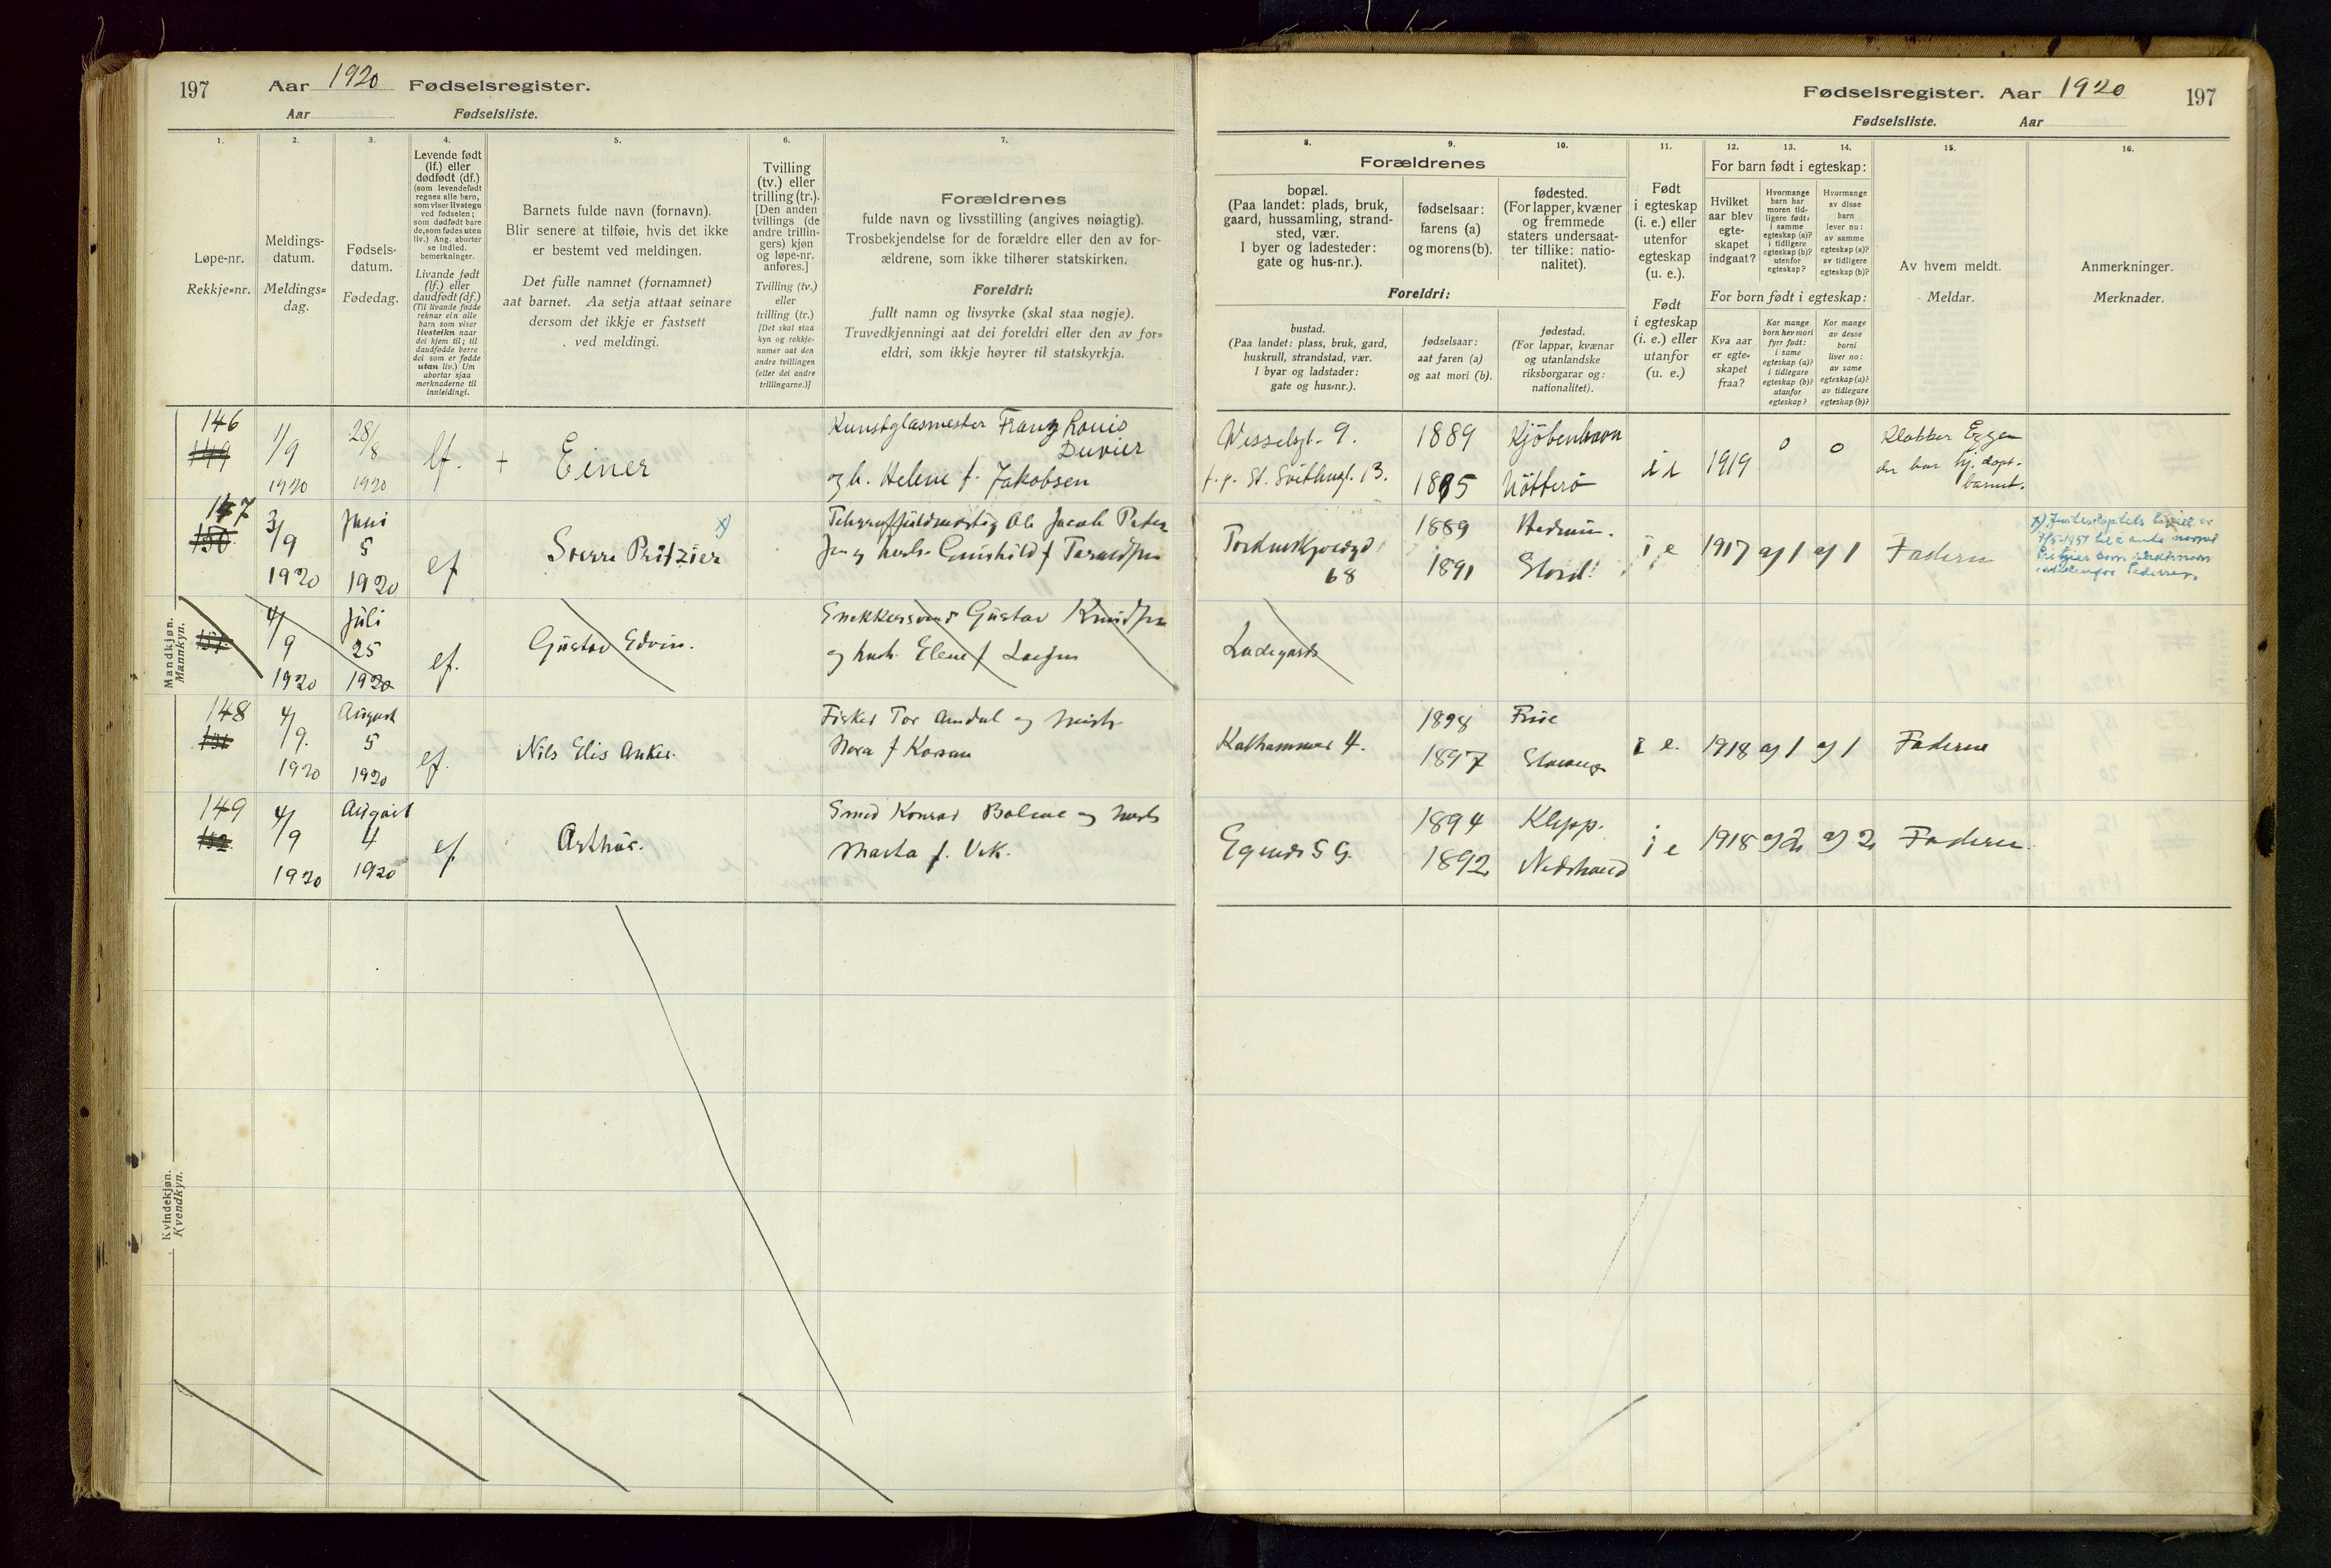 197
Aar 1920 Fødselsregister.
Aar Fødselsliste.
1.
2.
3.
4.
5.
6.
7.
Løpe-nr.
Rekkje-nr.
Meldings-
datum.
Meldings=
dag.
Fødsels-
datum.
Fødedag.
Levende født
(lf.) eller
dødfødt (df.)
(som levendefødt
regnes alle barn,
som viser livstegn
ved fødselen;
som dødfødt bare
de, som fødes uten
liv.) Ang. aborter
se indled.
bemerkninger.
Livande født
(lf.) eller
daudfødt (df.)
(Til livande fødde
reknar ein alle
barn som viser
livsteikn naar
dei kjem til; til
daudfødde berre
dei som er fødde
utan liv.) Um
abortar sjaa
merknaderne til
innleidingi.
Barnets fulde navn (fornavn).
Blir senere at tilføie, hvis det ikke
er bestemt ved meldingen.
Det fulle namnet (fornamnet)
aat barnet. Aa setja attaat seinare
dersom det ikkje er fastsett
ved meldingi.
Tvilling
(tv.) eller
trilling (tr.).
[Den anden
tvillings (de
andre trillin-
gers) kjøn
og løpe-nr.
anføres.]
Tvilling (tv.)
eller
trilling (tr.)
[Det skal staa
kyn og rekkje-
numer aat den
andre tvillingen
(eller dei andre
trillingarne.)]
Forældrenes
fulde navn og livsstilling (angives nøiagtig).
Trosbekjendelse for de forældre eller den av for-
ældrene, som ikke tilhører statskirken.
Foreldri:
fullt namn og livsyrke (skal staa nøgje).
Truvedkjenningi aat dei foreldri eller den av for=
eldri, som ikkje høyrer til statskyrkja.
Mandkjøn.
Mannkyn.
146
149
1/9
1920
28/8
1920
lf.
+ Einer
Kunstglasmester Franz Louis
Duvier
og h. Helene f. Jakobsen
147
150
3/9
1920
Juni
5
1920
lf
Sverre Pritzier x)
Ole Jacob Peder
sen og hustr. Gunhild f
151
4/9
1920
Juli
25
1920
lf.
Gustav Edvin.
Snekkersvend Gustav Knudsen
og hustr. Elene f Larsen
148
151
4/9.
1920
August
5
1920
lf.
Nils Elis Anker.
Fisker Tor Amdal og hustr
Nora f
149
152.
4/9
1920
August
4
1920
lf
Arthur.
Smed Konrad og hustr
Marta f. Vik.
Kvindekjøn.
Kvendkyn.
Fødselsregister. Aar 1920
197
Fødselsliste. Aar
8.
9.
10.
11.
12.
13.
14.
15.
16.
Forældrenes
bopæl.
(Paa landet: plads, bruk,
gaard, hussamling, strand-
sted, vær.
I byer og ladesteder:
gate og hus-nr.).
fødselsaar:
farens (a)
og morens (b).
fødested.
(For lapper, kvæner
og fremmede
staters undersaat-
ter tillike: natio-
nalitet).
Foreldri:
bustad.
(Paa landet: plass, bruk, gard,
huskrull, strandstad, vær.
I byar og ladstader:
gate og hus=nr.).
fødselsaar:
aat faren (a)
og aat mori (b).
fødestad.
(For lappar, kvænar
og utanlandske
riksborgarar og:
nationalitet).
Født
i egteskap
(i. e.) eller
utenfor
egteskap
(u. e.).
Født
i egteskap
(i. e.) eller
utanfor
(u. e.)
For barn født i egteskap:
Hvilket
aar blev
egte-
skapet
indgaat?
Hvormange
barn har
moren tid-
ligere født:
i samme
egteskap (a)?
i tidligere
egteskap (b)?
utenfor
egteskap?
Hvormange
av disse
barn
lever nu:
av samme
egteskap (a)?
av tidligere
egteskap (b)?
For born født i egteskap:
Kva aar
er egte-
skapet
fraa?
Kor mange
born hev mori
fyrr født:
i same
egteskap (a)?
i tidlegare
egteskap (b)?
utanfor
egteskap?
Kor mange
av desse
borni
liver no:
av same
egteskap (a)?
av tidlegare
egteskap (b)?
Av hvem meldt.
Meldar.
Anmerkninger.
Merknader.
Wesselsgt. 9.
f. p. St. Svithungt. 13.
1889
1895
Kjöbenhavn
Nötterö
i e
1919
0
0
Klokker Eggen
der har hj. döpt.
barnet.
68
1889
1891
Hedrum.
Stord.
i e
1917
a) 1
a) 1
Faderen
Ladegaards
Kalhammer 4.
1898
1897
Stavanger
i e.
1918
a) 1
a) 1
Faderen
1894
1892
Klepp.
Nedstrand
i e
1918
a) 2
a) 2
Faderen.